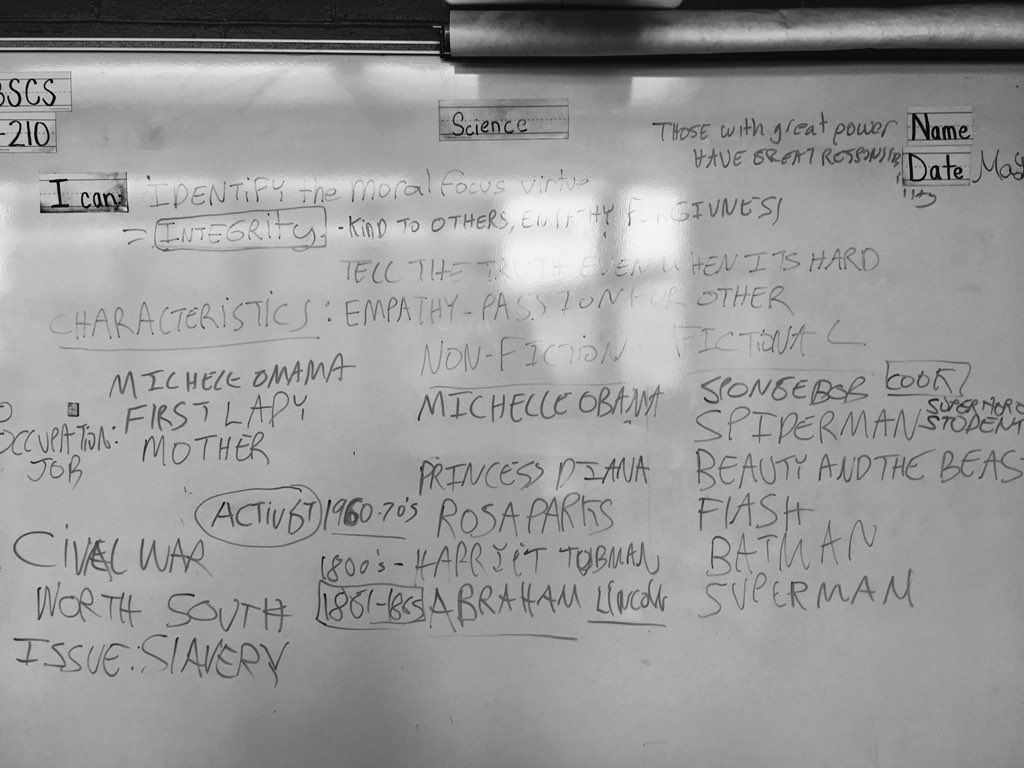 BSCS
-210
Science
THOSE with great power
HAVE GREAT RESPONSIB
Name
Date
I can:
IDENTIFY the moral focus virtue
= INTEGRITY. - KIND TO OTHERS, EMPATHY FORGIVNESS
TELL THE TRUTH EVEN WHEN ITS HARD
CHARACTERISTICS: EMPATHY - PASSION FOR OTHER
NON-FICTION FICTIONAL
MICHELE OMAMA
FIRST LADY
OCCUPATION:
JOB
MOTHER
MICHELLE OBAMA
PRINCESS DIANA
ACTIVST 1960-70's ROSA PARKS
1800's - HARRYIT TUBMAN
1861-1865 ABRAHAM Lincoln
SPONGEBOB COOK
SPIDERMAN - SUPERHERO
STUDENT
BEAUTY AND THE BEAS
FLASH
BATMAN
SUPERMAN
CIVAL WAR
NORTH SOUTH
ISSUE: SLAVERY